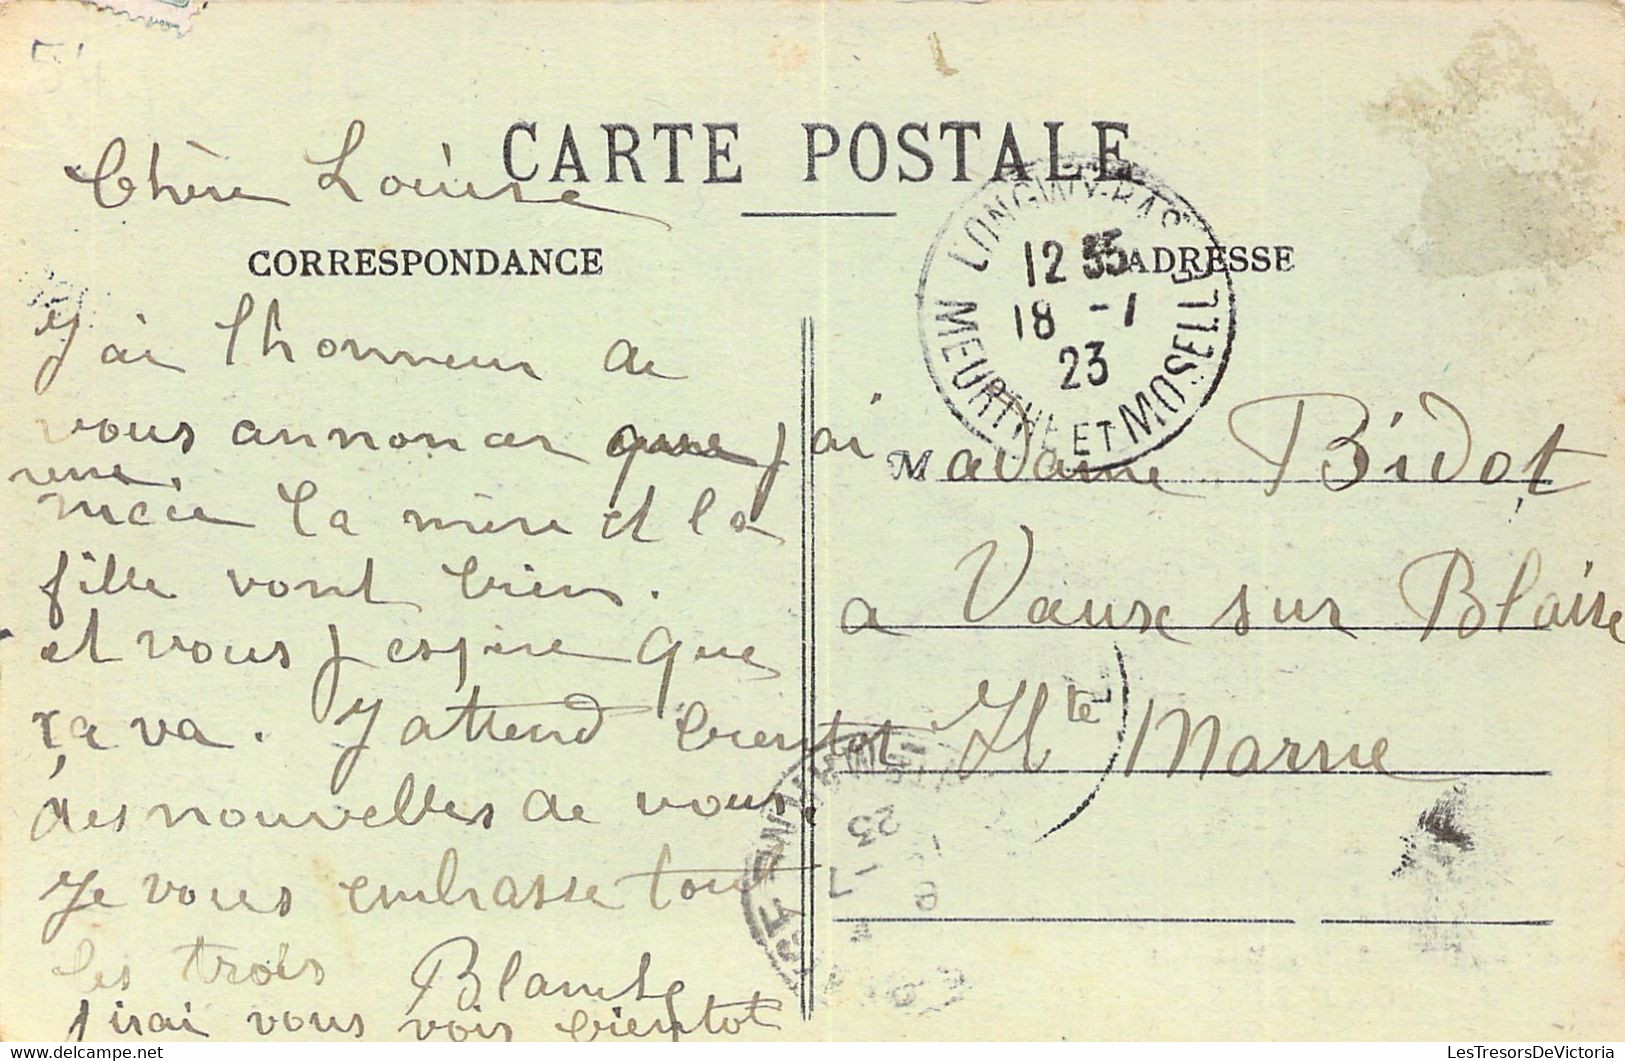 54
CARTE POSTALE
Chère Louise
CORRESPONDANCE
ADRESSE
LONGWY-BAS
12 35
18 -1
23
MEURTHE ET MOSELLE
J'ai l honneur de
vous annoncer que j ai
une
nièce la mère et la
fille vont bien.
et vous j espère que
ça va. J attend bientot
des nouvelles de vous,
Je vous embrasse tous
les trois Blanche
j irai vous voir bientot
Madame Bidot
a Vaux sur Blaise
Hte Marne
LesTresorsDeVictoria